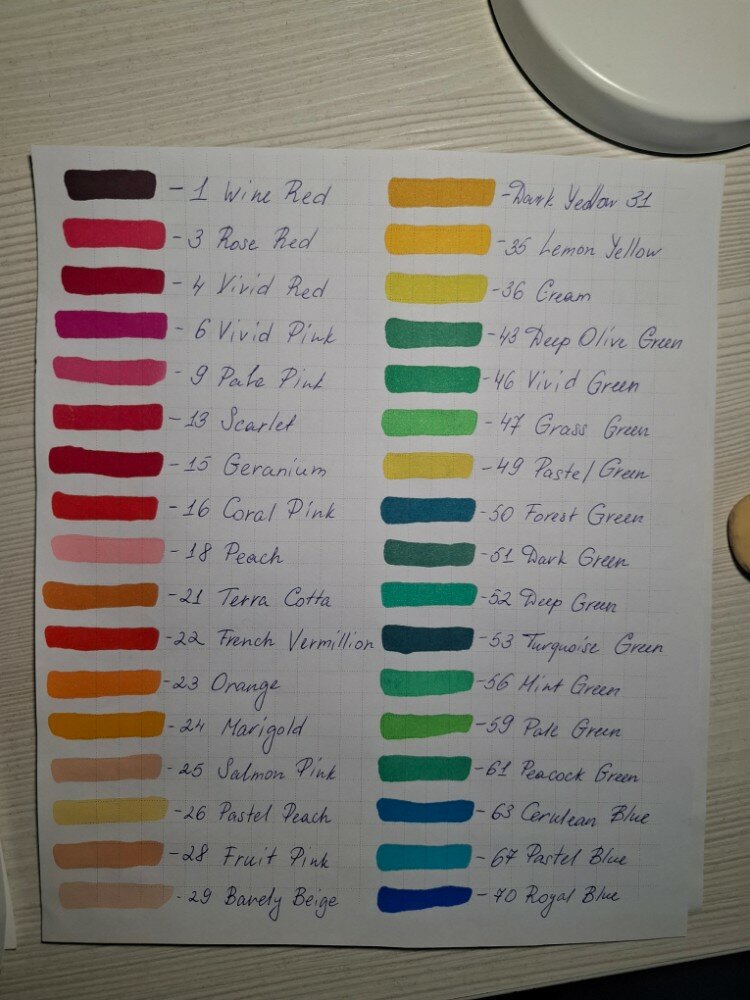 -1 Wine Red
-3 Rose Red
-4 Vivid Red
-6 Vivid Pink
-9 Pale Pink
-13 Scarlet
-15 Geranium
-16 Coral Pink
-18 Peach
-21 Terra Cotta
-22 French Vermillion
-23 Orange
-24 Marigold
-25 Salmon Pink
-26 Pastel Peach
-28 Fruit Pink
-29 Barely Beige
-Dark Yellow 31
-35 Lemon Yellow
-36 Cream
-43 Deep Olive Green
-46 Vivid Green
-47 Grass Green
-49 Pastel Green
-50 Forest Green
-51 Dark Green
-52 Deep Green
-53 Turquoise Green
-56 Mint Green
-59 Pale Green
-61 Peacock Green
-63 Cerulean Blue
-67 Pastel Blue
-70 Royal Blue